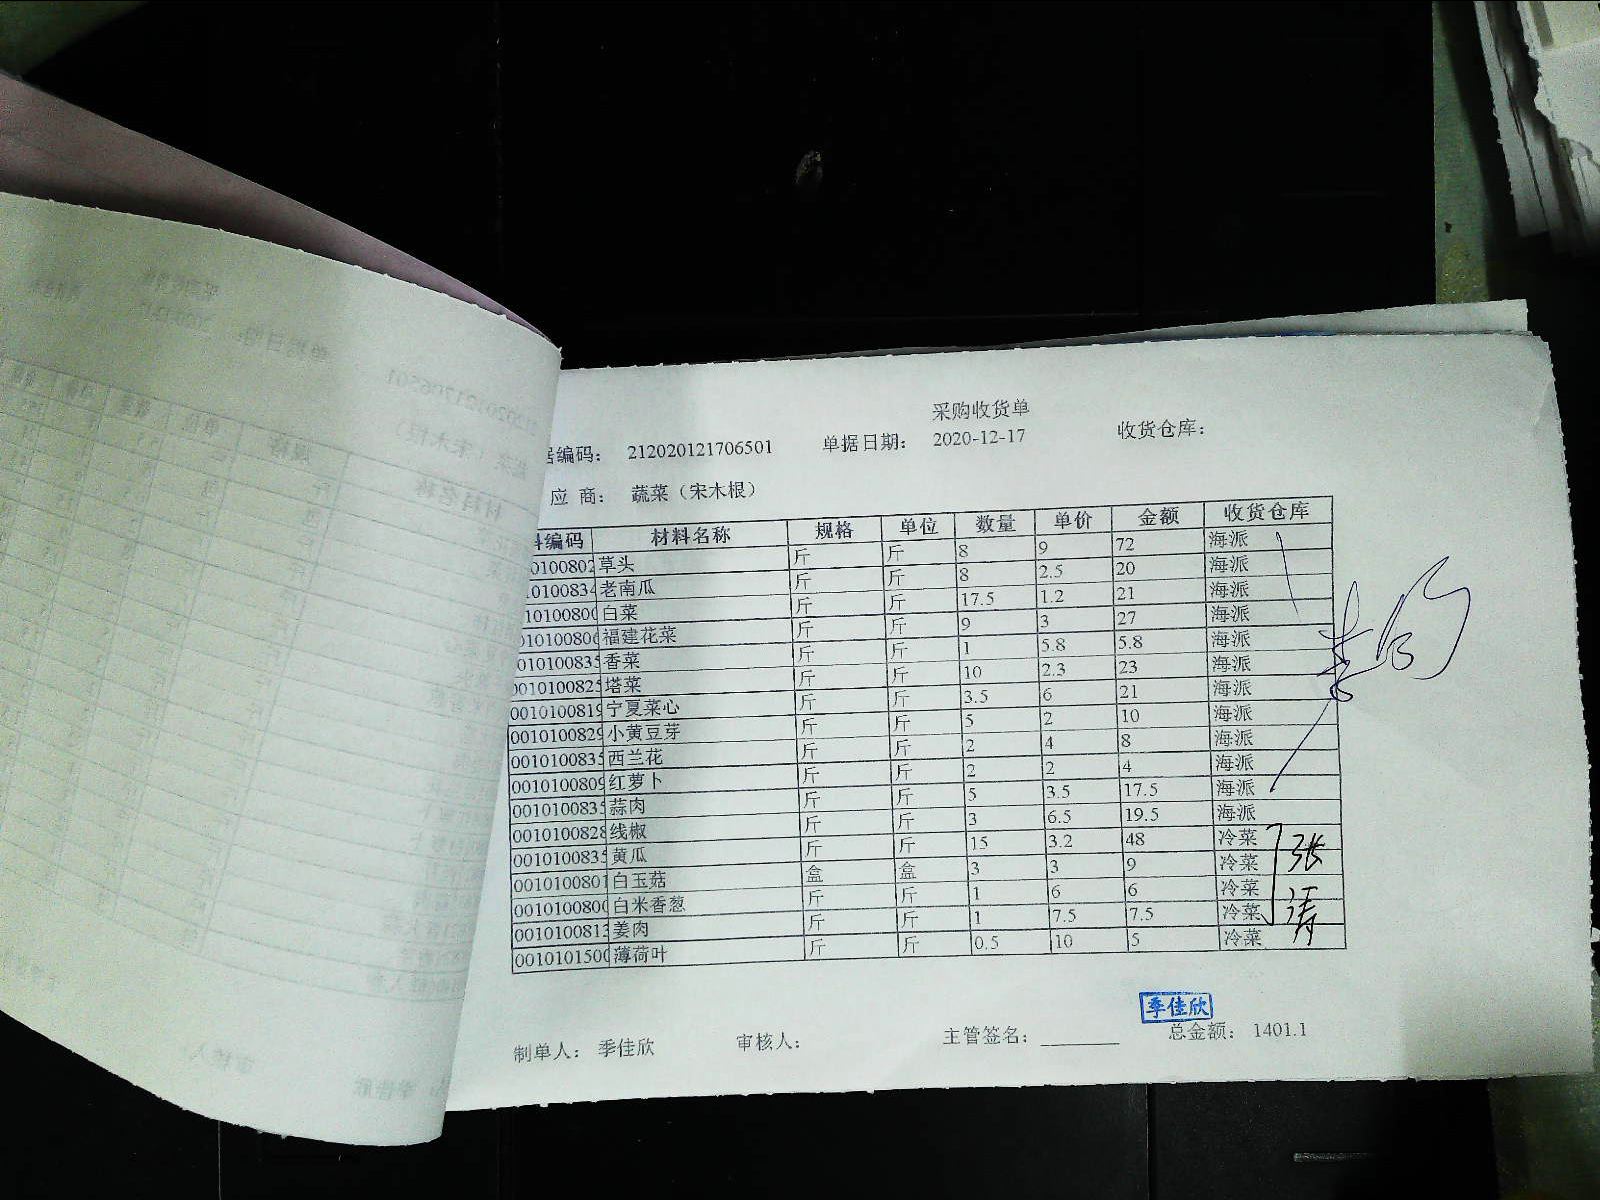 采购收货单
居编码： 212020121706501 单据日期： 2020-12-17 收货仓库：
应 商： 蔬菜（宋木根）
编码 材料名称 规格 单位 数量 单价 金额 收货仓库
0100802 草头 斤 斤 8 9 72 海派
10100834 老南瓜 斤 斤 8 2.5 20 海派
10100800 白菜 斤 斤 17.5 1.2 21 海派
010100806 福建花菜 斤 斤 9 3 27 海派
010100835 香菜 斤 斤 1 5.8 5.8 海派
0010100825 塔菜 斤 斤 10 2.3 23 海派
0010100819 宁夏菜心 斤 斤 3.5 6 21 海派
0010100829 小黄豆芽 斤 斤 5 2 10 海派
0010100835 西兰花 斤 斤 2 4 8 海派
0010100809 红萝卜 斤 斤 2 2 4 海派
0010100835 蒜肉 斤 斤 5 3.5 17.5 海派
0010100828 线椒 斤 斤 3 6.5 19.5 海派
0010100835 黄瓜 斤 斤 15 3.2 48 冷菜
0010100801 白玉菇 盒 盒 3 3 9 冷菜
0010100800 白米香葱 斤 斤 1 6 6 冷菜
0010100813 姜肉 斤 斤 1 7.5 7.5 冷菜
0010101500 薄荷叶 斤 斤 0.5 10 5 冷菜
张涛
季佳欣
制单人： 季佳欣 审核人： 主管签名：________ 总金额： 1401.1